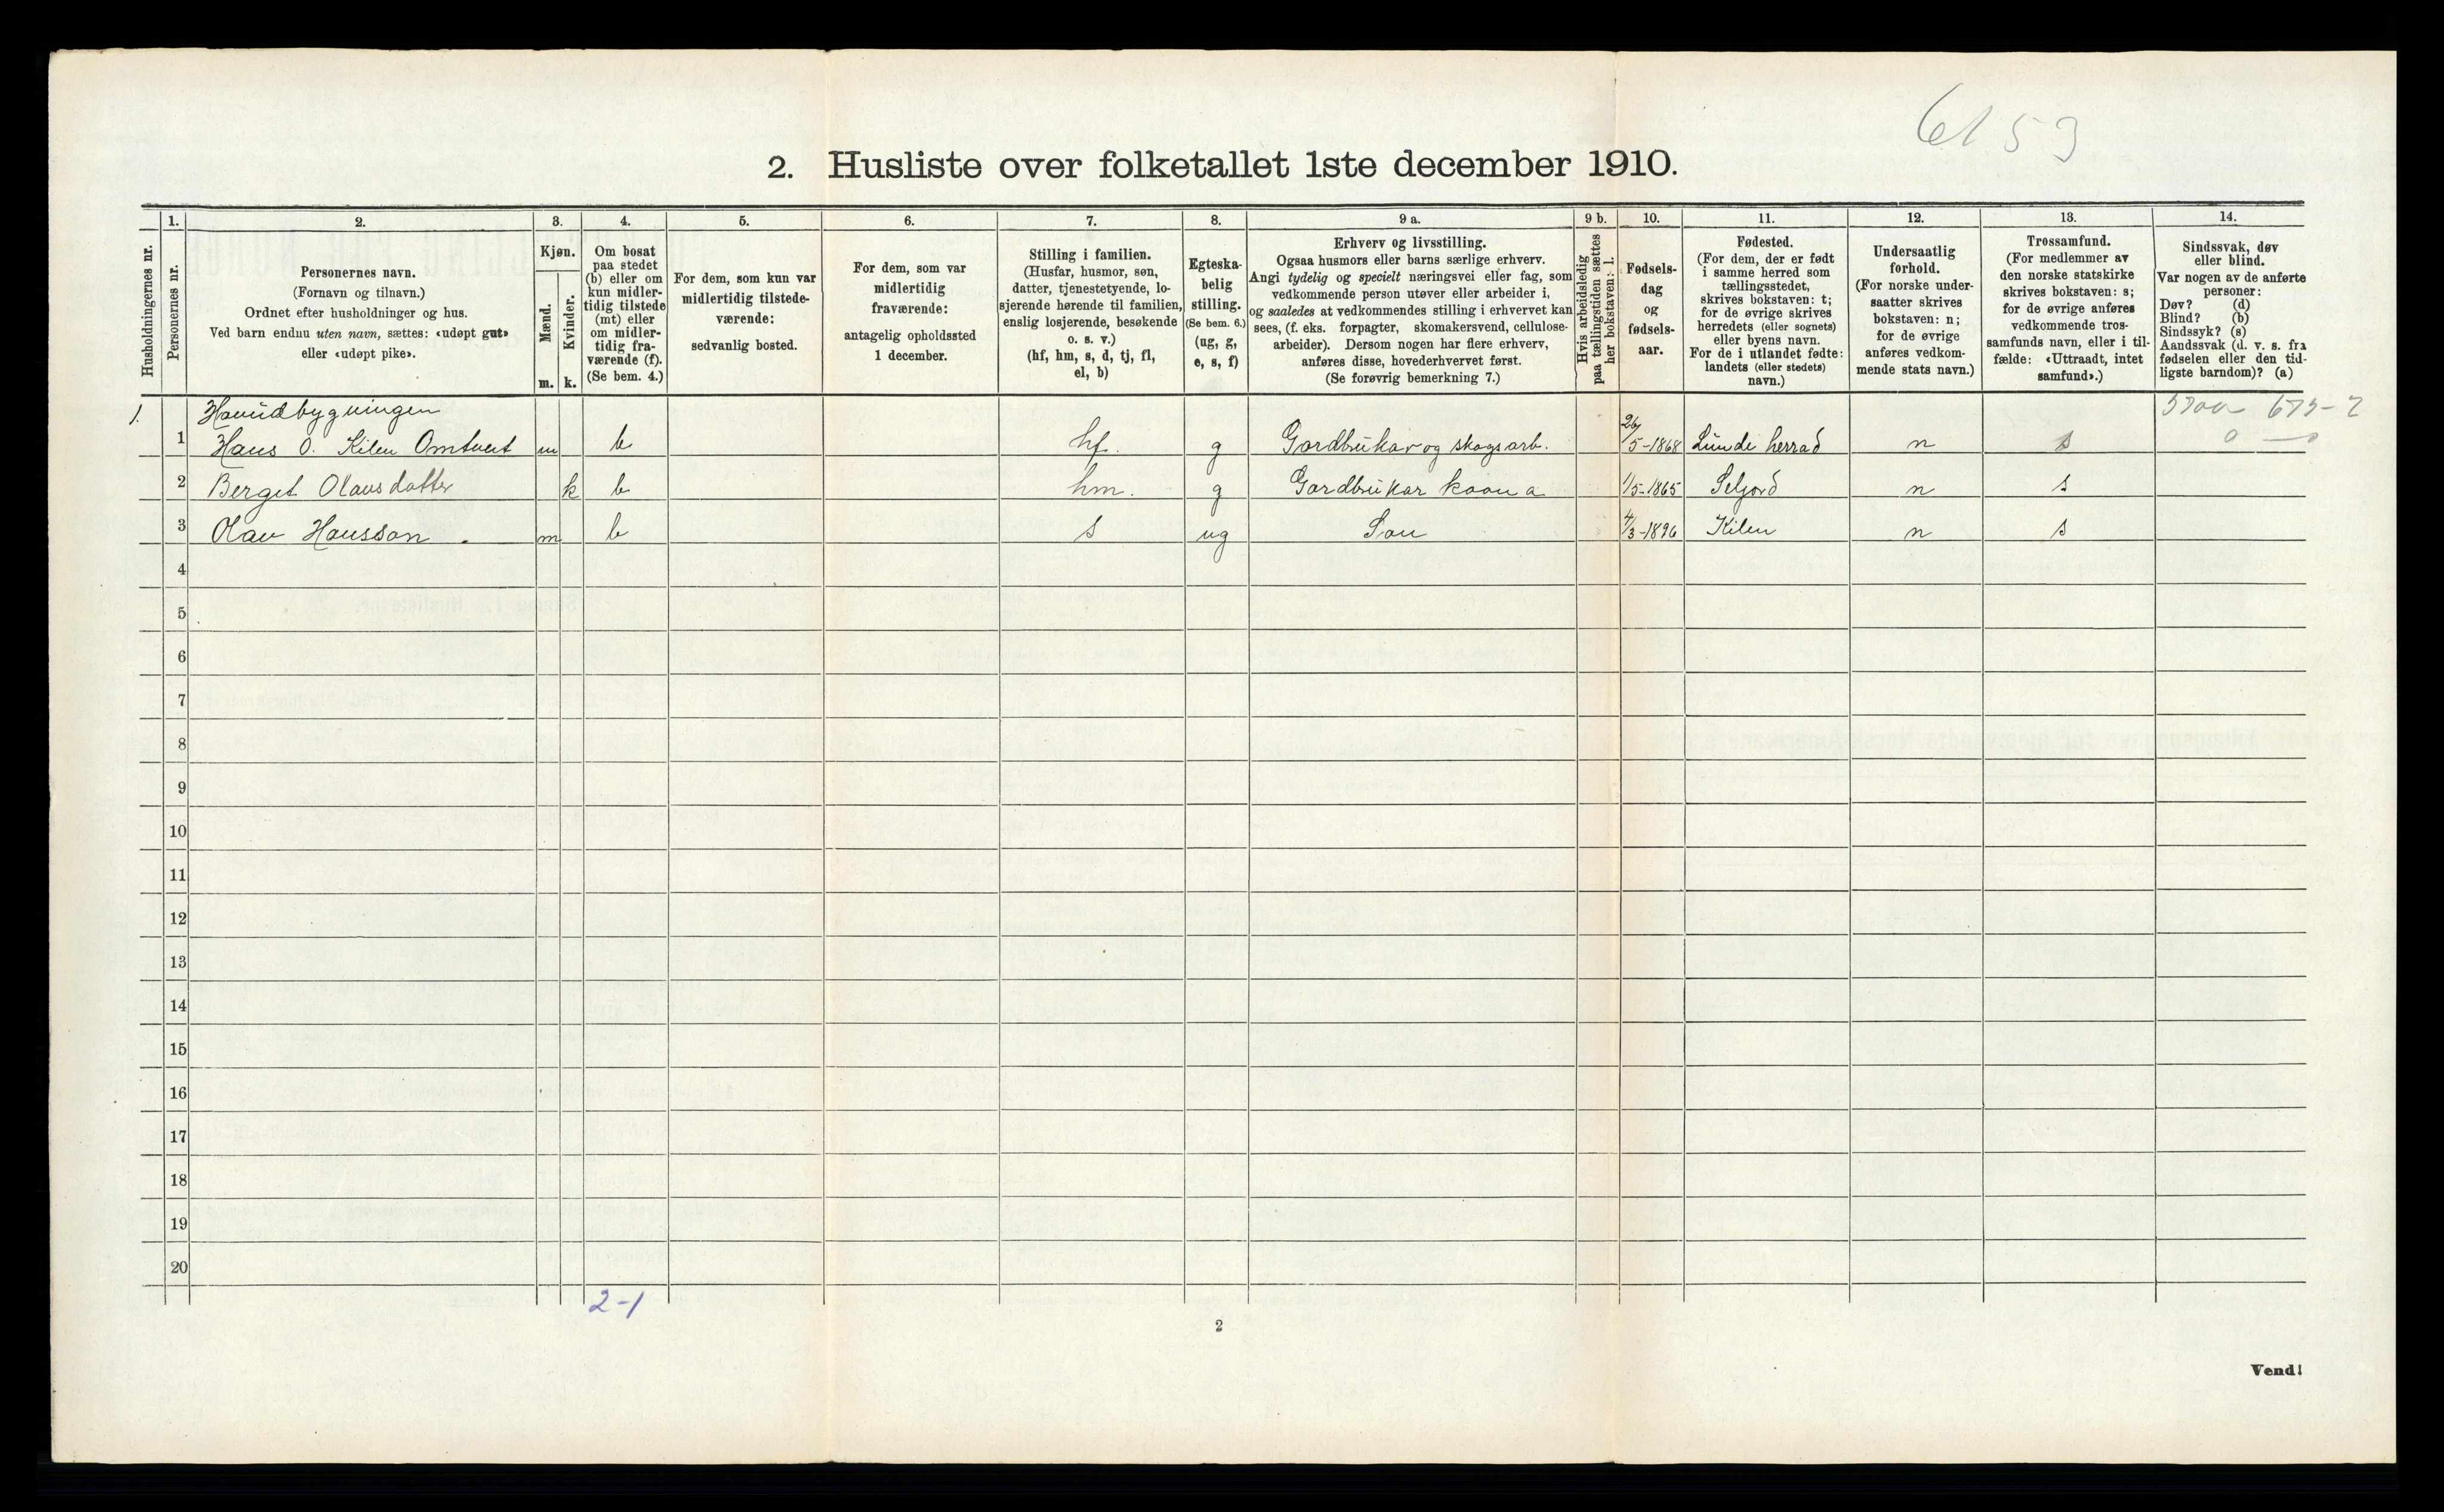 6153
2. Husliste over folketallet 1ste december 1910.
Husholdningernes nr.
1.
Personernes nr.
2.
Personernes navn.
(Fornavn og tilnavn.)
Ordnet efter husholdninger og hus.
Ved barn endnu uten navn, sættes: «udøpt gut»
eller «udøpt pike».
3.
Kjøn.
Mænd.
m.
Kvinder.
k.
4.
Om bosat
paa stedet
(b) eller om
kun midler-
tidig tilstede
(mt) eller
om midler-
tidig fra-
værende (f).
(Se bem. 4.)
5.
For dem, som kun var
midlertidig tilstede-
værende:
sedvanlig bosted.
6.
For dem, som var
midlertidig
fraværende:
antagelig opholdssted
1 december.
7.
Stilling i familien.
(Husfar, husmor, søn,
datter, tjenestetyende, lo-
sjerende hørende til familien,
enslig losjerende, besøkende
o. s. v.)
(hf, hm, s, d, tj, fl,
el, b)
8.
Egteska-
belig
stilling.
(Se bem. 6.)
(ug, g,
e, s, f)
9 a.
Erhverv og livsstilling.
Ogsaa husmors eller barns særlige erhverv.
Angi tydelig og specielt næringsvei eller fag, som
vedkommende person utøver eller arbeider i,
og saaledes at vedkommendes stilling i erhvervet kan
sees, (f. eks. forpagter, skomakersvend, cellulose-
arbeider). Dersom nogen har flere erhverv,
anføres disse, hovederhvervet først.
(Se forøvrig bemerkning 7.)
9 b.
Hvis arbeidsledig
paa tællingstiden sættes
her bokstaven: l.
10.
Fødsels-
dag
og
fødsels-
aar.
11.
Fødested.
(For dem, der er født
i samme herred som
tællingsstedet,
skrives bokstaven: t;
for de øvrige skrives
herredets (eller sognets)
eller byens navn.
For de i utlandet fødte:
landets (eller stedets)
navn.)
12.
Undersaatlig
forhold.
(For norske under-
saatter skrives
bokstaven: n;
for de øvrige
anføres vedkom-
mende stats navn.)
13.
Trossamfund.
(For medlemmer av
den norske statskirke
skrives bokstaven: s;
for de øvrige anføres
vedkommende tros-
samfunds navn, eller i til-
fælde: «Uttraadt, intet
samfund».)
14.
Sindssvak, døv
eller blind.
Var nogen av de anførte
personer:
Døv? (d)
Blind? (b)
Sindssyk? (s)
Aandssvak (d. v. s. fra
fødselen eller den tid-
ligste barndom)? (a)
1. Hovudbygningen
1 Hans O. Kilen Omtveit m b hf. g Gardbrukar og skogsarb. 26/5-1868 Lunde herrad n s
2 Berget Olavsdotter k b hm. g Gardbrukar kaana 1/5-1865 Seljord n s
3 Olav Hansson m b s ug Son 4/3-1896 Kilen n s
4
5
6
7
8
9
10
11
12
13
14
15
16
17
18
19
20
2-1
2
Vend!